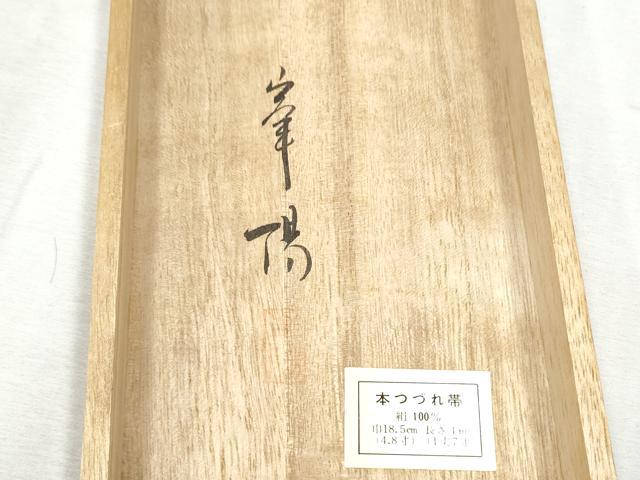 峯陽
本つづれ帯
絹 100%
巾18.5cm 長さ4m
(4.8寸) (1丈7寸